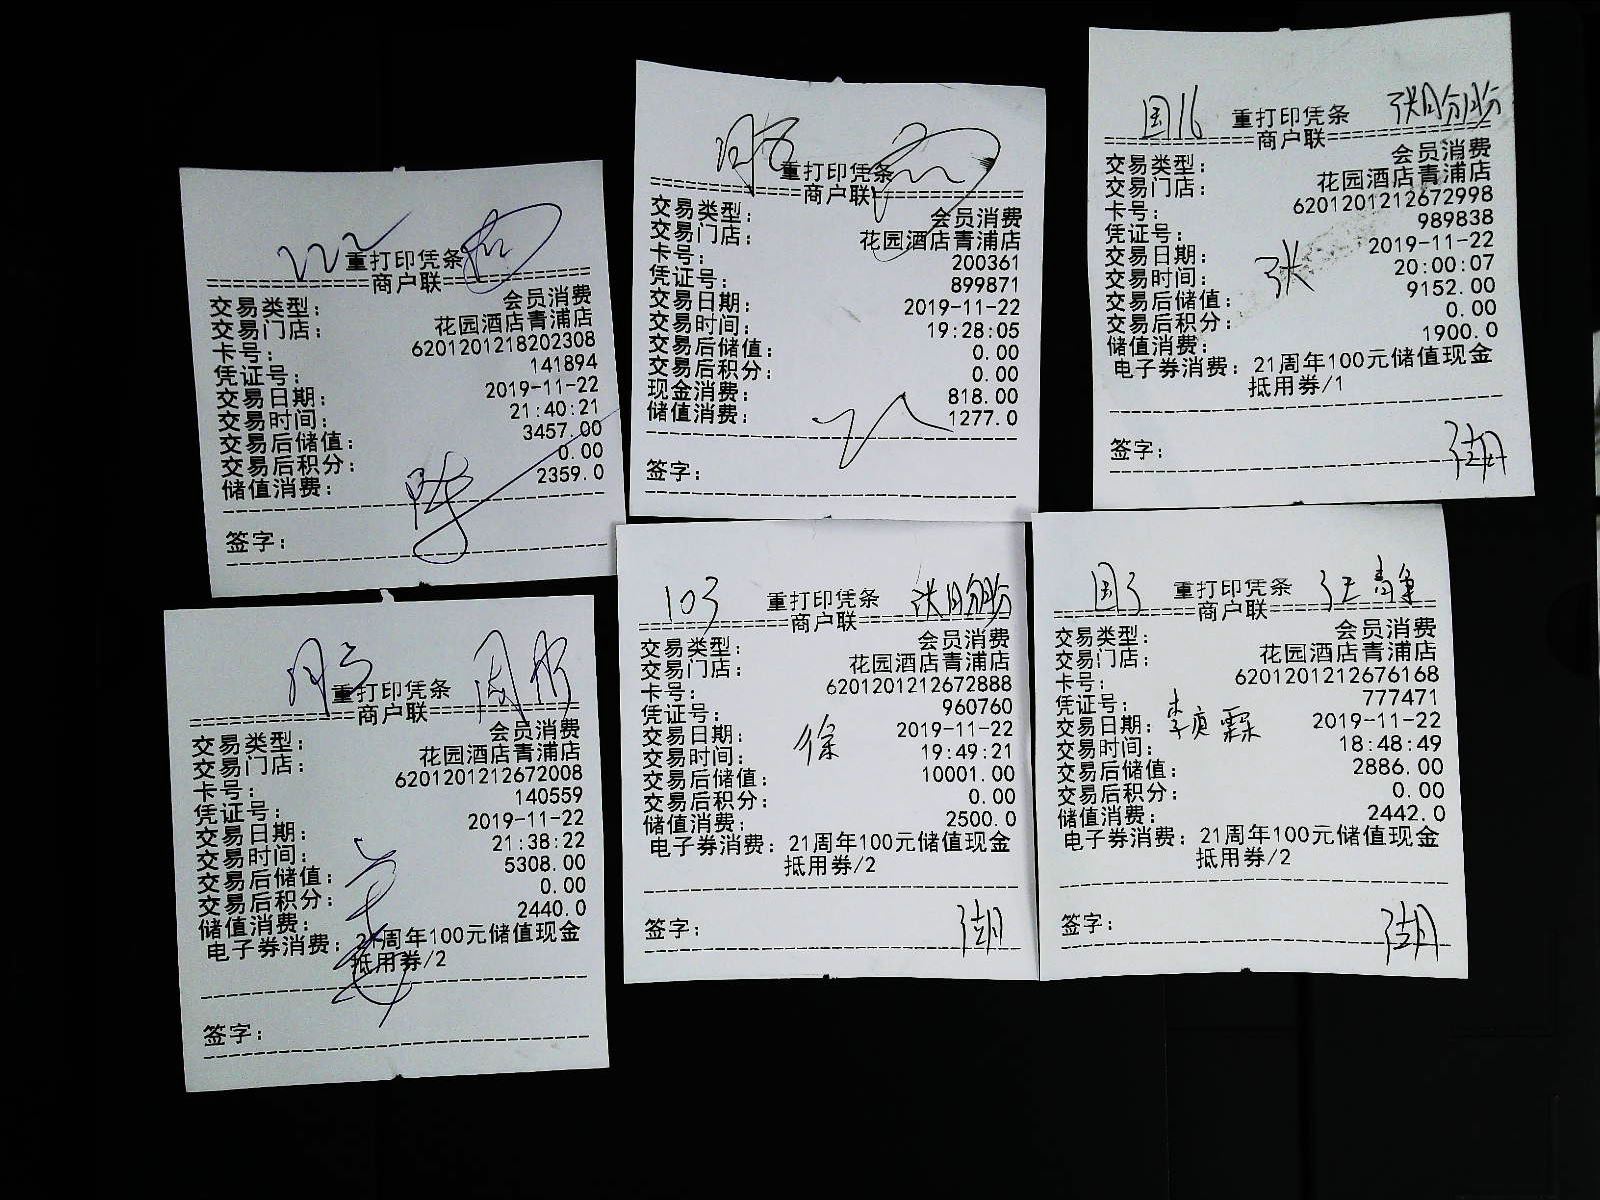 222
重打印凭条
商户联
交易类型: 会员消费
交易门店: 花园酒店青浦店
卡号: 6201201218202308
凭证号: 141894
交易日期: 2019-11-22
交易时间: 21:40:21
交易后储值: 3457.00
交易后积分: 0.00
储值消费: 2359.0
陈
签字:
重打印凭条
商户联
交易类型: 会员消费
交易门店: 花园酒店青浦店
卡号: 200361
凭证号: 899871
交易日期: 2019-11-22
交易时间: 19:28:05
交易后储值: 0.00
交易后积分: 0.00
现金消费: 818.00
储值消费: 1277.0
签字:
国16 重打印凭条
商户联
交易类型: 会员消费
交易门店: 花园酒店青浦店
卡号: 6201201212672998
凭证号: 989838
交易日期: 2019-11-22
交易时间: 张 20:00:07
交易后储值: 9152.00
交易后积分: 0.00
储值消费: 1900.0
电子券消费: 21周年100元储值现金
抵用券/1
签字:
重打印凭条
商户联
交易类型: 会员消费
交易门店: 花园酒店青浦店
卡号: 6201201212672008
凭证号: 140559
交易日期: 2019-11-22
交易时间: 21:38:22
交易后储值: 5308.00
交易后积分: 0.00
储值消费: 2440.0
电子券消费: 21周年100元储值现金
抵用券/2
签字:
103 重打印凭条
商户联
交易类型: 会员消费
交易门店: 花园酒店青浦店
卡号: 6201201212672888
凭证号: 960760
交易日期: 徐 2019-11-22
交易时间: 19:49:21
交易后储值: 10001.00
交易后积分: 0.00
储值消费: 2500.0
电子券消费: 21周年100元储值现金
抵用券/2
签字:
国3 重打印凭条
商户联
交易类型: 会员消费
交易门店: 花园酒店青浦店
卡号: 6201201212676168
凭证号: 777471
交易日期: 2019-11-22
交易时间: 18:48:49
交易后储值: 2886.00
交易后积分: 0.00
储值消费: 2442.0
电子券消费: 21周年100元储值现金
抵用券/2
签字: